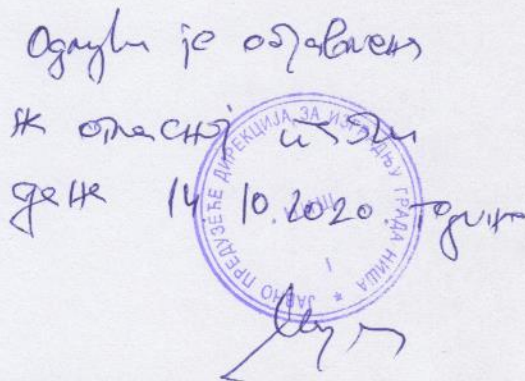 Одлука је објављена
на огласној табли
дана 14 10.2020 године
ЈАВНО ПРЕДУЗЕЋЕ ДИРЕКЦИЈА ЗА ИЗГРАДЊУ ГРАДА НИША
НИШ
I